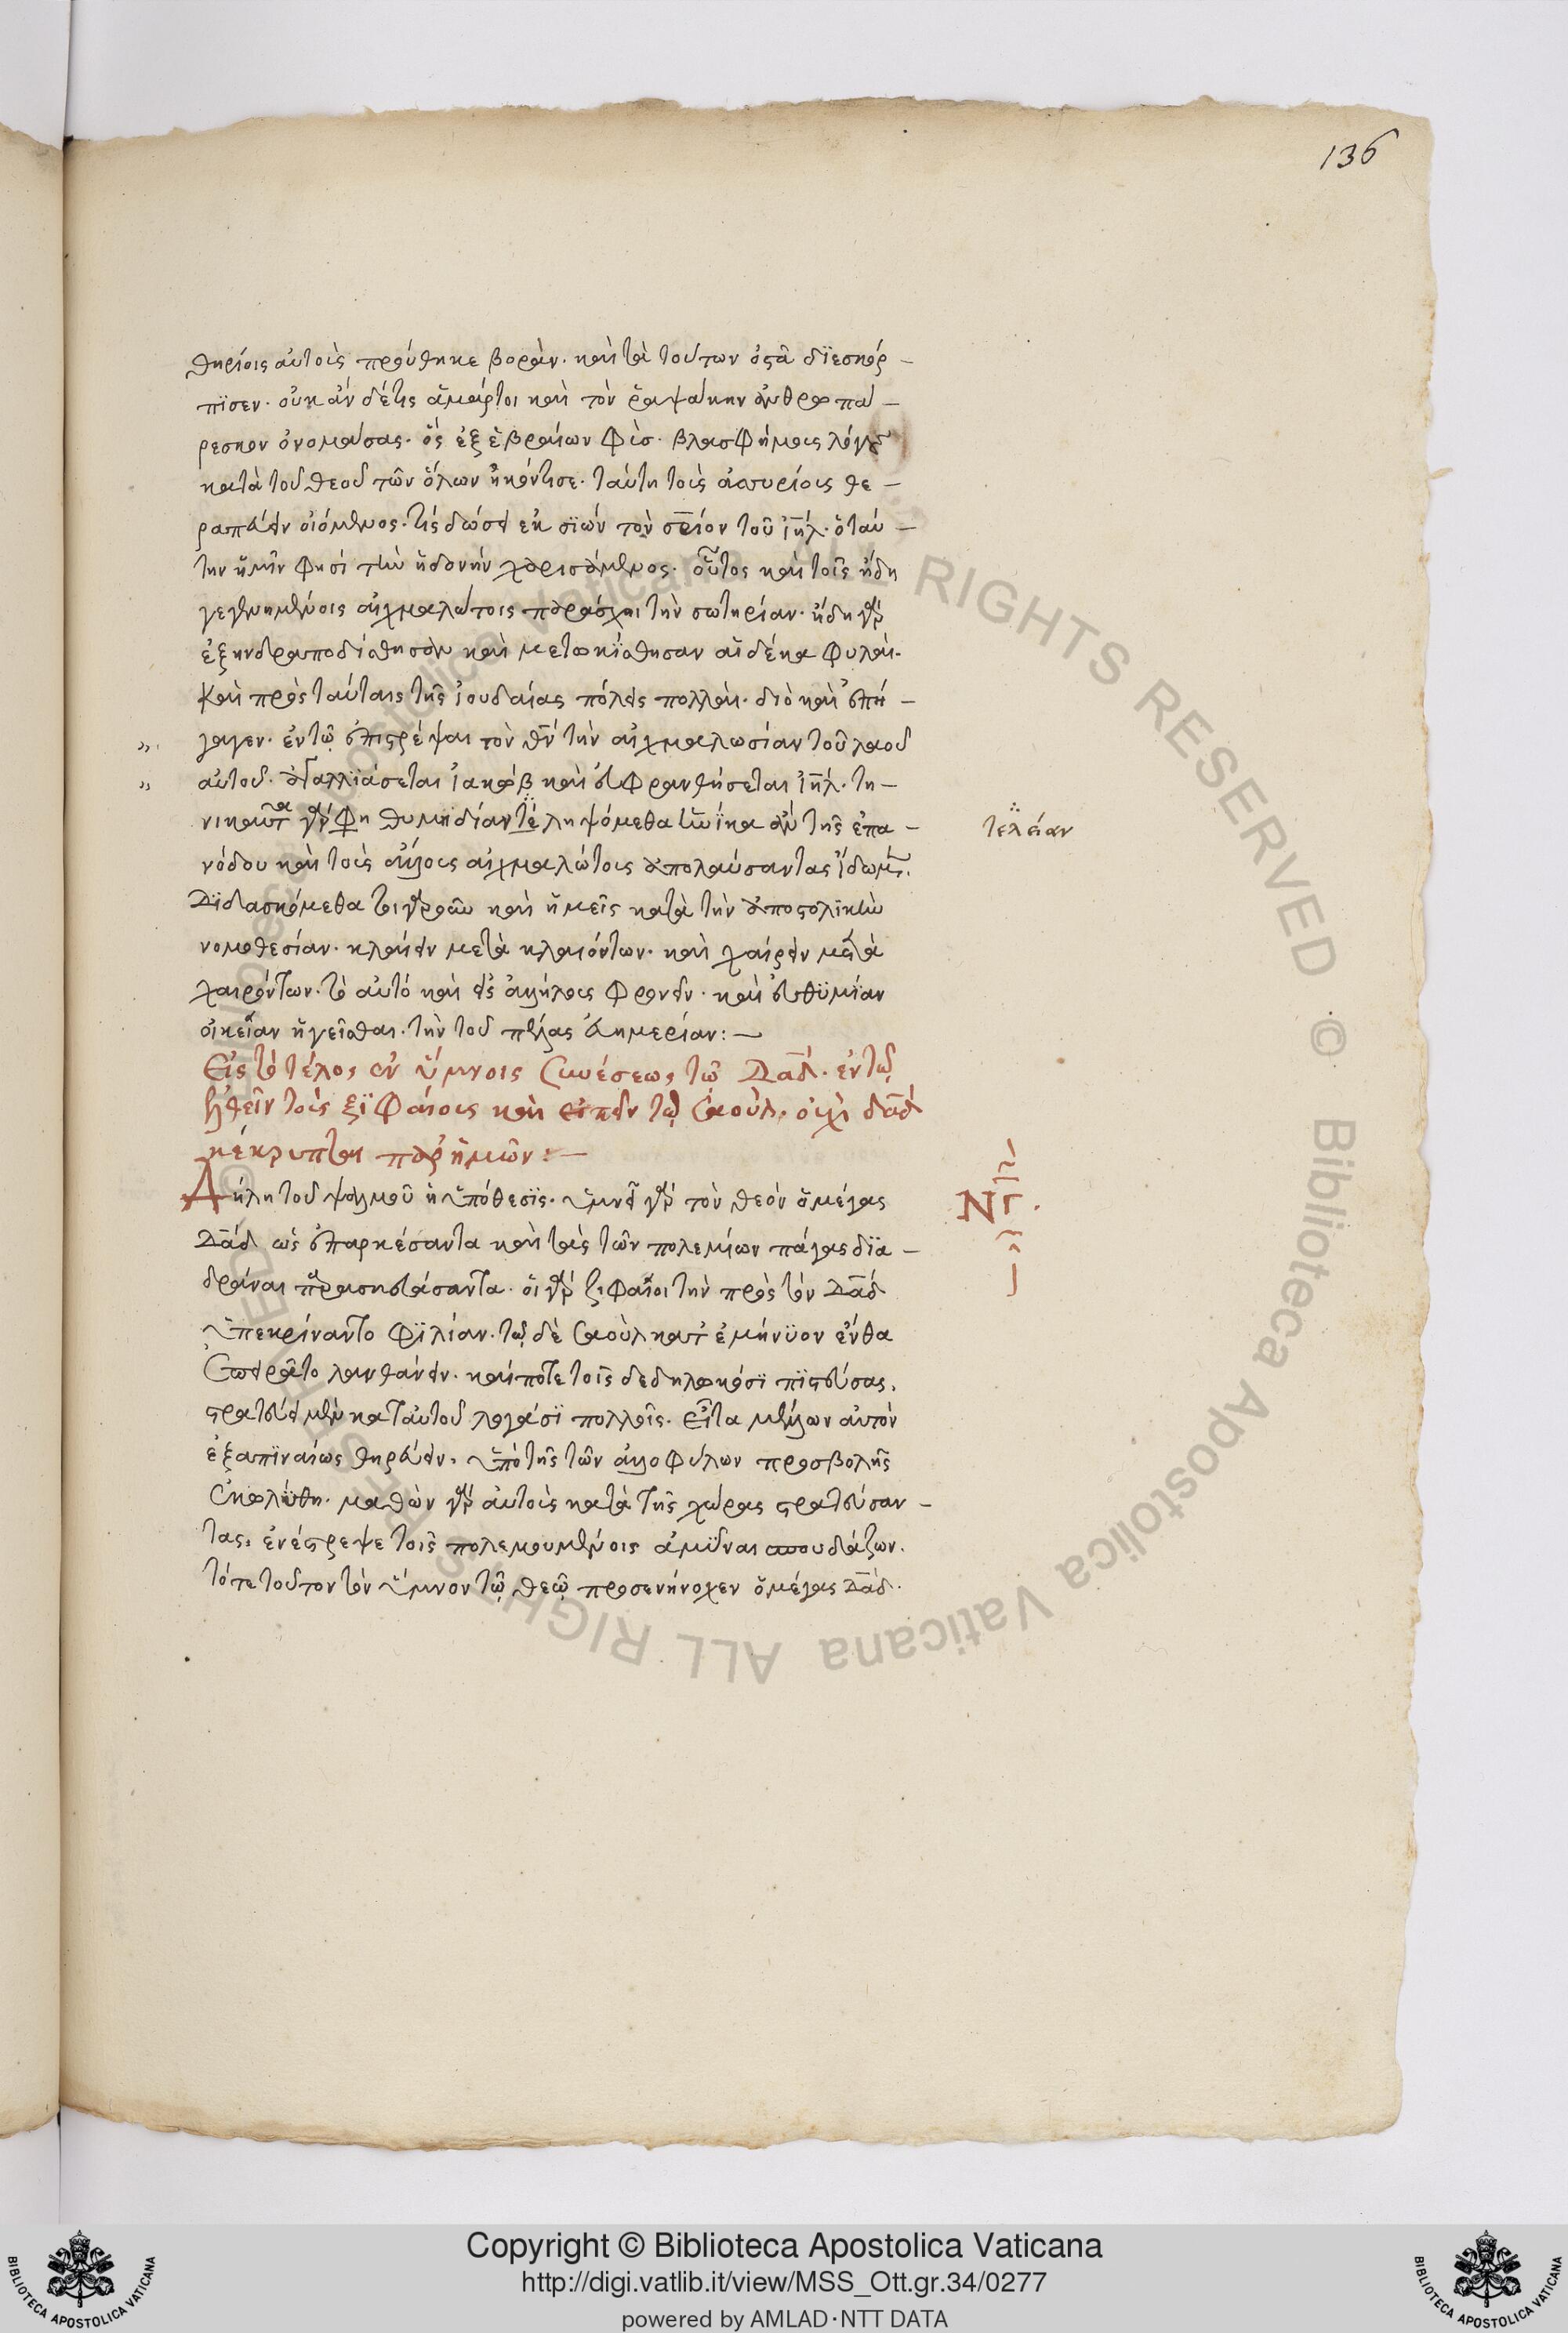 136
θηρίοις αὐτοὺς προύθηκε βοράν. καὶ τὰ τούτων ὀστᾶ διεσκόρ –
πισεν. οὐκ ἂν δέ τις ἁμάρτοι καὶ τὸν ῥαψάκην ἀνθρωπά –
ρεσκον ὀνομάσας. ὃς ἐξ ἑβραίων βλασφήμοις λόγοις
κατὰ τοῦ θεοῦ τῶν ὅλων ἠκόντισε. ταύτη τοὺς ἀσυρίους θε –
ραπεύειν οἰόμενος. τίς δώσει ἐκ σιὼν τὸ σριον τοῦ ιηλ. ὁ ταύ –
την ἡμῖν φησὶ τὴν ἡδονὴν χαρισάμενος. οὗτος καὶ τοῖς ἤδη
γεγενημένοις αἰχμαλώτοις παράσχῃ τὴν σωτηρίαν. ἤδη γὰρ
ἐξηνδραποδίσθησαν καὶ μετωκίσθησαν αἱ δέκα φυλαί.
καὶ πρὸς ταύταις τῆς ἰουδαίας πόλεις πολλαί. διὸ καὶ ἐπή –
» γαγεν. ἐν τῷ ἐπιστρέψαι τὸν θν τὴν αἰχμαλωσίαν τοῦ λαοῦ
» αὐτοῦ. ἀγαλλιάσεται ἰακώβ καὶ εὐφρανθήσεται ιηλ. τη –
νικαῦτα γὰρ φη θυμηδίαν τε ληψόμεθα ἡνίκα ἂν τῆς ἐπα – τελείαν
νόδου καὶ τοὺς ἄλλους αἰχμαλώτους ἀπολαύσαντας ἴδωμεν.
Διδασκόμεθα τοιγαροῦν καὶ ἡμεῖς κατὰ τὴν ἀποστολικὴν
νομοθεσίαν. κλαίειν μετὰ κλαιόντων. καὶ χαίρειν μετὰ
χαιρόντων. τὸ αὐτὸ καὶ εἰς ἀλλήλους φρονεῖν. καὶ εὐθυμίαν
οἰκείαν ἡγεῖσθαι. τὴν τοῦ πέλας εὐημερίαν: –
Εἰς τὸ τέλος ἐν ὕμνοις συνέσεως τῷ Δαδ. ἐν τῷ
ἐλθεῖν τοὺς ξιφαίους καὶ εἰπεῖν τῷ σαούλ. οὐχὶ δαδ
κέκρυπται παρ' ἡμῶν: –
Δήλη τοῦ ψαλμοῦ ἡ ὑπόθεσις. ὑμνεῖ γὰρ τὸν θεὸν ὁ μέγας ΝΓ.
Δαδ ὡς ἐπαρκέσαντα καὶ τὰς τῶν πολεμίων πάγας δια –
δρᾶναι παρασκευάσαντα. οἱ γὰρ ζιφαῖοι τὴν πρὸς τὸν Δαδ
ὑπεκρίναντο φιλίαν. τῷ δὲ σαοὺλ κατεμήνυον ἔνθα
ἐπειρᾶτο λανθάνειν. καί ποτε τοῖς δεδηλωκόσι πιστεύσας,
στρατεύει μὲν κατ' αὐτοῦ λογάσι πολλοῖς. εἶτα μέλλων αὐτὸν
ἐξαπιναίως θηρεύειν, ὑπὸ τῆς τῶν ἀλλοφύλων προσβολῆς
ἐκωλύθη. μαθὼν γὰρ αὐτοὺς κατὰ τῆς χώρας στρατεύσαν –
τας, ἀνέστρεψε τοῖς πολεμουμένοις ἀμῦναι σπουδάζων.
τότε τοῦτον τὸν ὕμνον τῷ θεῷ προσενήνοχεν ὁ μέγας Δαδ.
Copyright © Biblioteca Apostolica Vaticana
http://digi.vatlib.it/view/MSS_Ott.gr.34/0277
powered by AMLAD·NTT DATA
BIBLIOTECA APOSTOLICA VATICANA
BIBLIOTECA APOSTOLICA VATICANA
© Biblioteca Apostolica Vaticana ALL RIGHTS RESERVED
© Biblioteca Apostolica Vaticana ALL RIGHTS RESERVED